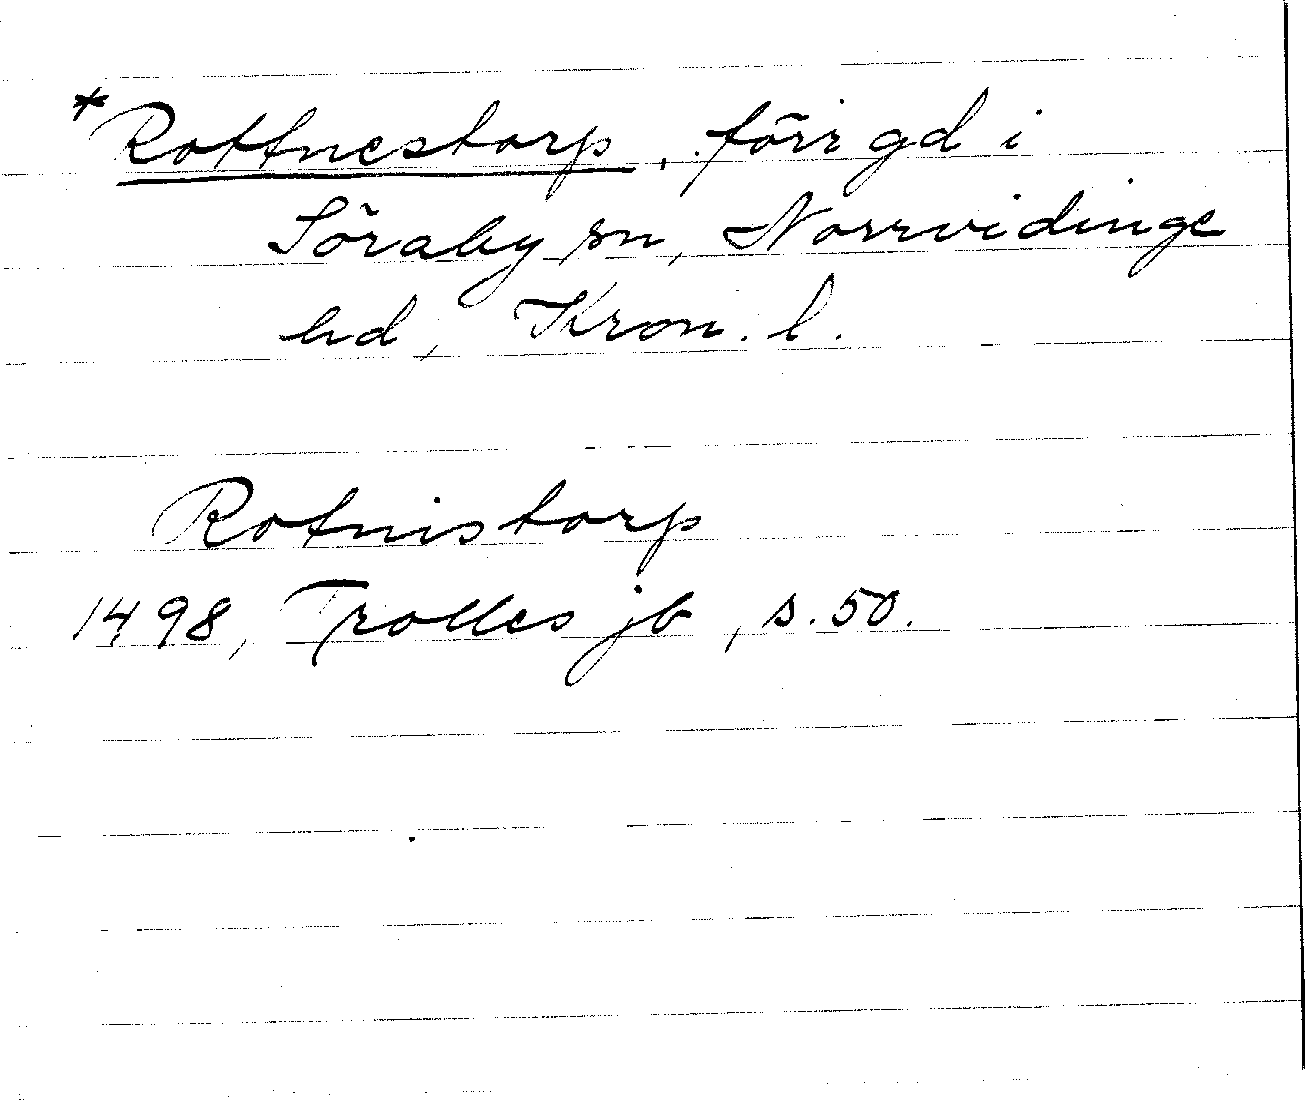 *Rottnestorp, förr gd i
Söraby sn, Norrvidinge
hd, Kron. l.
Rotnistorp
1498, Trolles jb, s. 50.